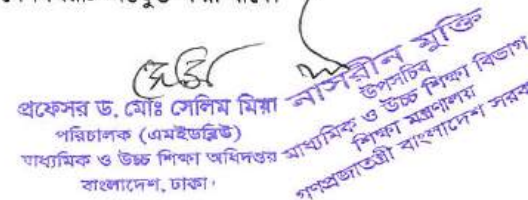 প্রফেসর ড. মোঃ সেলিম মিয়া
পরিচালক (এমইডব্লিউ)
মাধ্যমিক ও উচ্চ শিক্ষা অধিদপ্তর
বাংলাদেশ, ঢাকা।
নাসরীন মুক্তি
উপসচিব
মাধ্যমিক ও উচ্চ শিক্ষা বিভাগ
শিক্ষা মন্ত্রণালয়
গণপ্রজাতন্ত্রী বাংলাদেশ সরকা